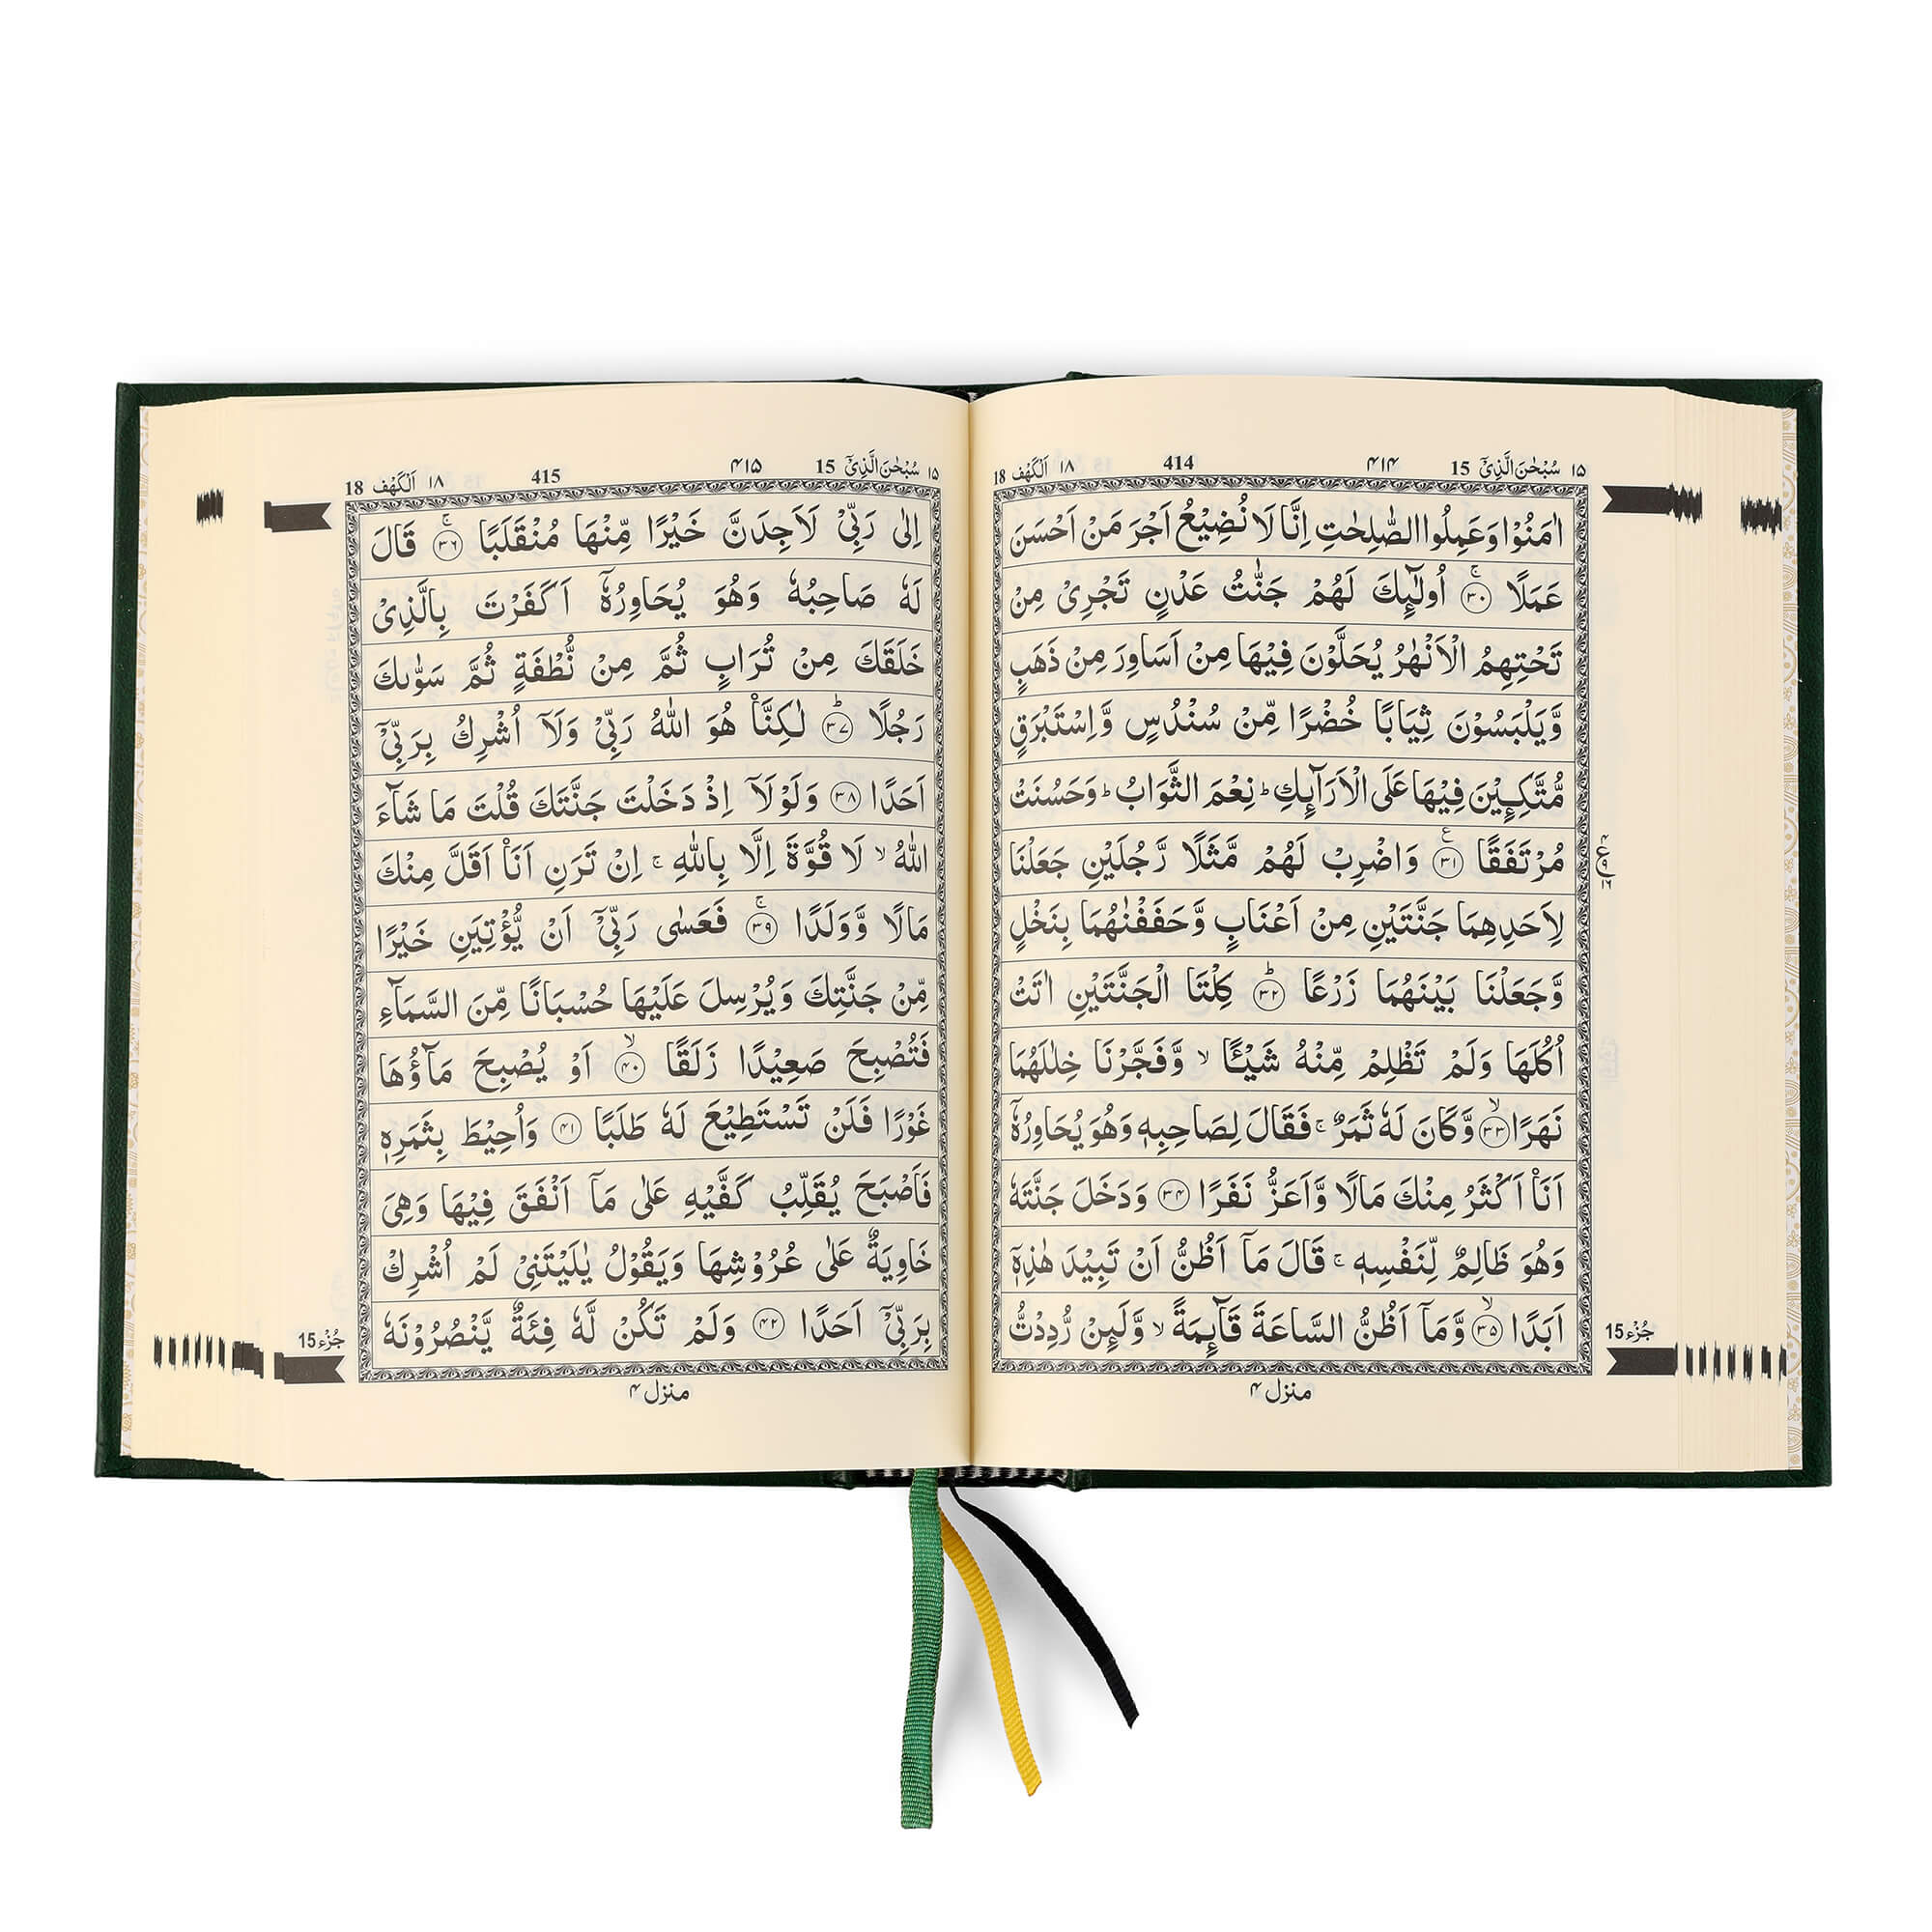 ١٥ سُبْحٰنَ الَّذِیْٓ 15 ۴۱۴ 414 ١٨ اَلْكَهْف 18
اٰمَنُوْا وَعَمِلُوا الصّٰلِحٰتِ اِنَّا لَا نُضِیْعُ اَجْرَ مَنْ اَحْسَنَ
عَمَلًا ۚ ﴿۳۰﴾ اُولٰٓئِكَ لَهُمْ جَنّٰتُ عَدْنٍ تَجْرِیْ مِنْ
تَحْتِهِمُ الْاَنْهٰرُ یُحَلَّوْنَ فِیْهَا مِنْ اَسَاوِرَ مِنْ ذَهَبٍ
وَّیَلْبَسُوْنَ ثِیَابًا خُضْرًا مِّنْ سُنْدُسٍ وَّاِسْتَبْرَقٍ
مُّتَّكِـِٕیْنَ فِیْهَا عَلَی الْاَرَآئِكِ ؕ نِعْمَ الثَّوَابُ ؕ وَحَسُنَتْ
مُرْتَفَقًا ﴿۳۱﴾ ع وَاضْرِبْ لَهُمْ مَّثَلًا رَّجُلَیْنِ جَعَلْنَا
لِاَحَدِهِمَا جَنَّتَیْنِ مِنْ اَعْنَابٍ وَّحَفَفْنٰهُمَا بِنَخْلٍ
وَّجَعَلْنَا بَیْنَهُمَا زَرْعًا ؕ ﴿۳۲﴾ كِلْتَا الْجَنَّتَیْنِ اٰتَتْ
اُكُلَهَا وَلَمْ تَظْلِمْ مِّنْهُ شَیْـًٔا ۙ وَّفَجَّرْنَا خِلٰلَهُمَا
نَهَرًا ۙ ﴿۳۳﴾ وَّكَانَ لَهٗ ثَمَرٌ ۚ فَقَالَ لِصَاحِبِهٖ وَهُوَ یُحَاوِرُهٗۤ
اَنَا۠ اَكْثَرُ مِنْكَ مَالًا وَّاَعَزُّ نَفَرًا ﴿۳۴﴾ وَدَخَلَ جَنَّتَهٗ
وَهُوَ ظَالِمٌ لِّنَفْسِهٖ ۚ قَالَ مَاۤ اَظُنُّ اَنْ تَبِیْدَ هٰذِهٖۤ
اَبَدًا ۙ ﴿۳۵﴾ وَّمَاۤ اَظُنُّ السَّاعَةَ قَآئِمَةً ۙ وَّلَئِنْ رُّدِدْتُّ
منزل ۴
جُزْء 15
١٥ سُبْحٰنَ الَّذِیْٓ 15 ۴۱۵ 415 ١٨ اَلْكَهْف 18
اِلٰی رَبِّیْ لَاَجِدَنَّ خَیْرًا مِّنْهَا مُنْقَلَبًا ۚ ﴿۳۶﴾ قَالَ
لَهٗ صَاحِبُهٗ وَهُوَ یُحَاوِرُهٗۤ اَكَفَرْتَ بِالَّذِیْ
خَلَقَكَ مِنْ تُرَابٍ ثُمَّ مِنْ نُّطْفَةٍ ثُمَّ سَوّٰىكَ
رَجُلًا ؕ ﴿۳۷﴾ لٰكِنَّا۠ هُوَ اللّٰهُ رَبِّیْ وَلَاۤ اُشْرِكُ بِرَبِّیْۤ
اَحَدًا ﴿۳۸﴾ وَلَوْلَاۤ اِذْ دَخَلْتَ جَنَّتَكَ قُلْتَ مَا شَآءَ
اللّٰهُ ۙ لَا قُوَّةَ اِلَّا بِاللّٰهِ ۚ اِنْ تَرَنِ اَنَا۠ اَقَلَّ مِنْكَ
مَالًا وَّوَلَدًا ۚ ﴿۳۹﴾ فَعَسٰی رَبِّیْۤ اَنْ یُّؤْتِیَنِ خَیْرًا
مِّنْ جَنَّتِكَ وَیُرْسِلَ عَلَیْهَا حُسْبَانًا مِّنَ السَّمَآءِ
فَتُصْبِحَ صَعِیْدًا زَلَقًا ۙ ﴿۴۰﴾ اَوْ یُصْبِحَ مَآؤُهَا
غَوْرًا فَلَنْ تَسْتَطِیْعَ لَهٗ طَلَبًا ﴿۴۱﴾ وَاُحِیْطَ بِثَمَرِهٖ
فَاَصْبَحَ یُقَلِّبُ كَفَّیْهِ عَلٰی مَاۤ اَنْفَقَ فِیْهَا وَهِیَ
خَاوِیَةٌ عَلٰی عُرُوْشِهَا وَیَقُوْلُ یٰلَیْتَنِیْ لَمْ اُشْرِكْ
بِرَبِّیْۤ اَحَدًا ﴿۴۲﴾ وَلَمْ تَكُنْ لَّهٗ فِئَةٌ یَّنْصُرُوْنَهٗ
منزل ۴
جُزْء 15